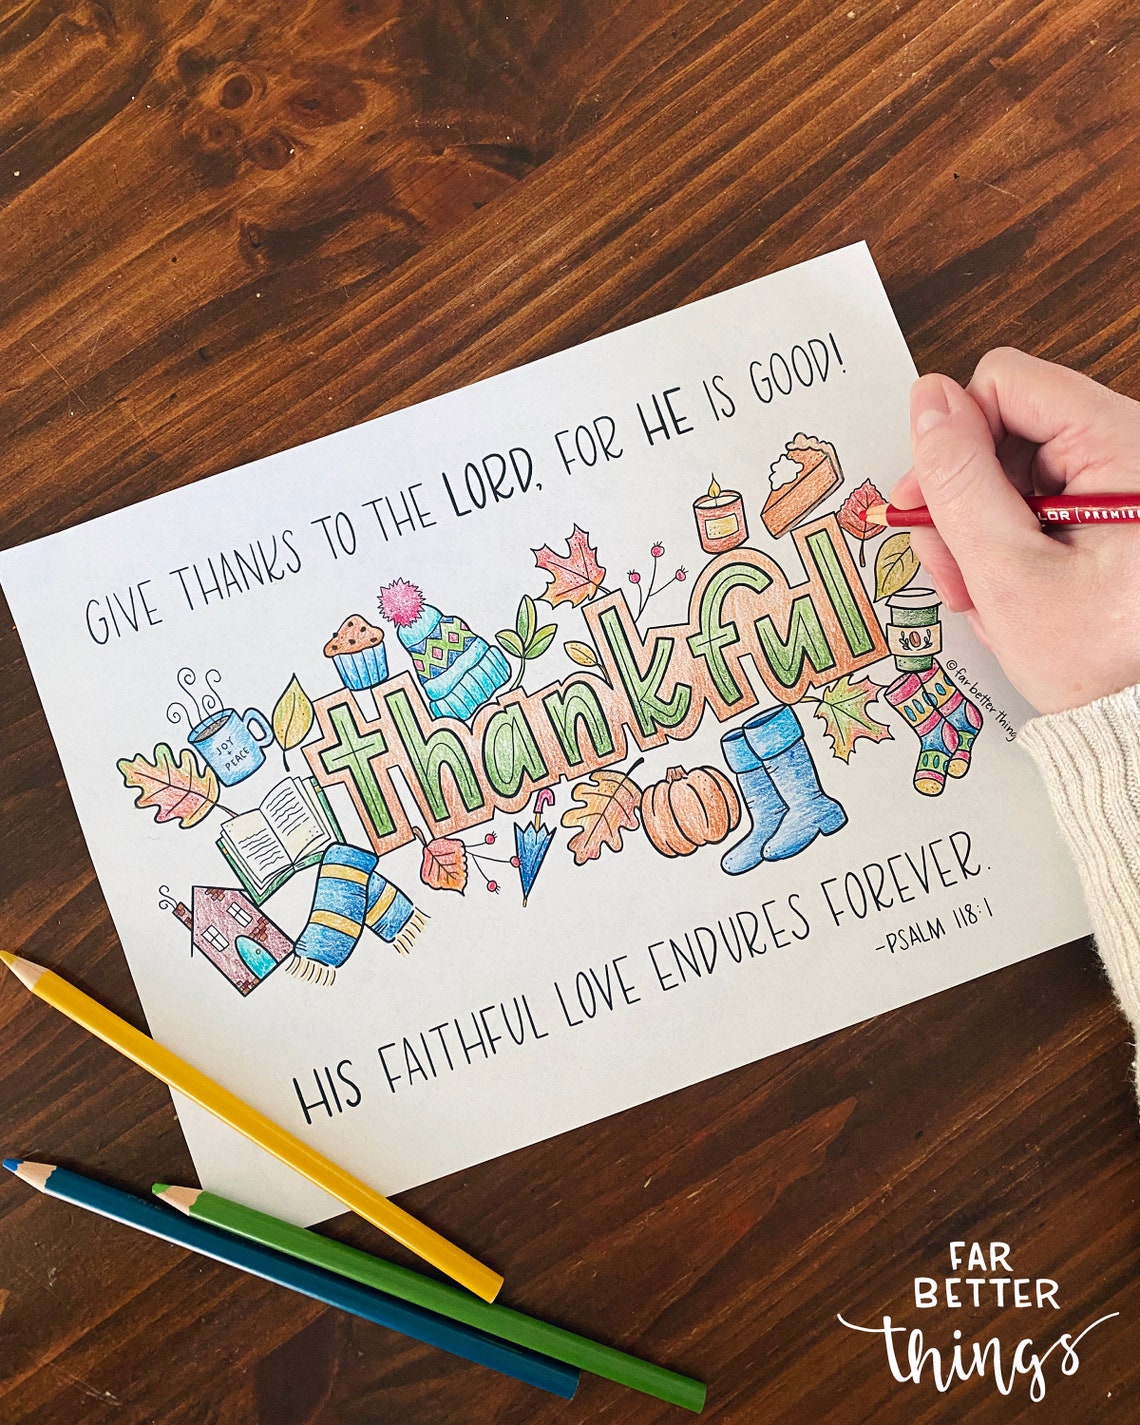 GIVE THANKS TO THE LORD, FOR HE IS GOOD!
thankful
JOY
+
PEACE
©far better things
HIS FAITHFUL LOVE ENDURES FOREVER.
-PSALM 118:1
LOR | PREMIER
FAR
BETTER
things